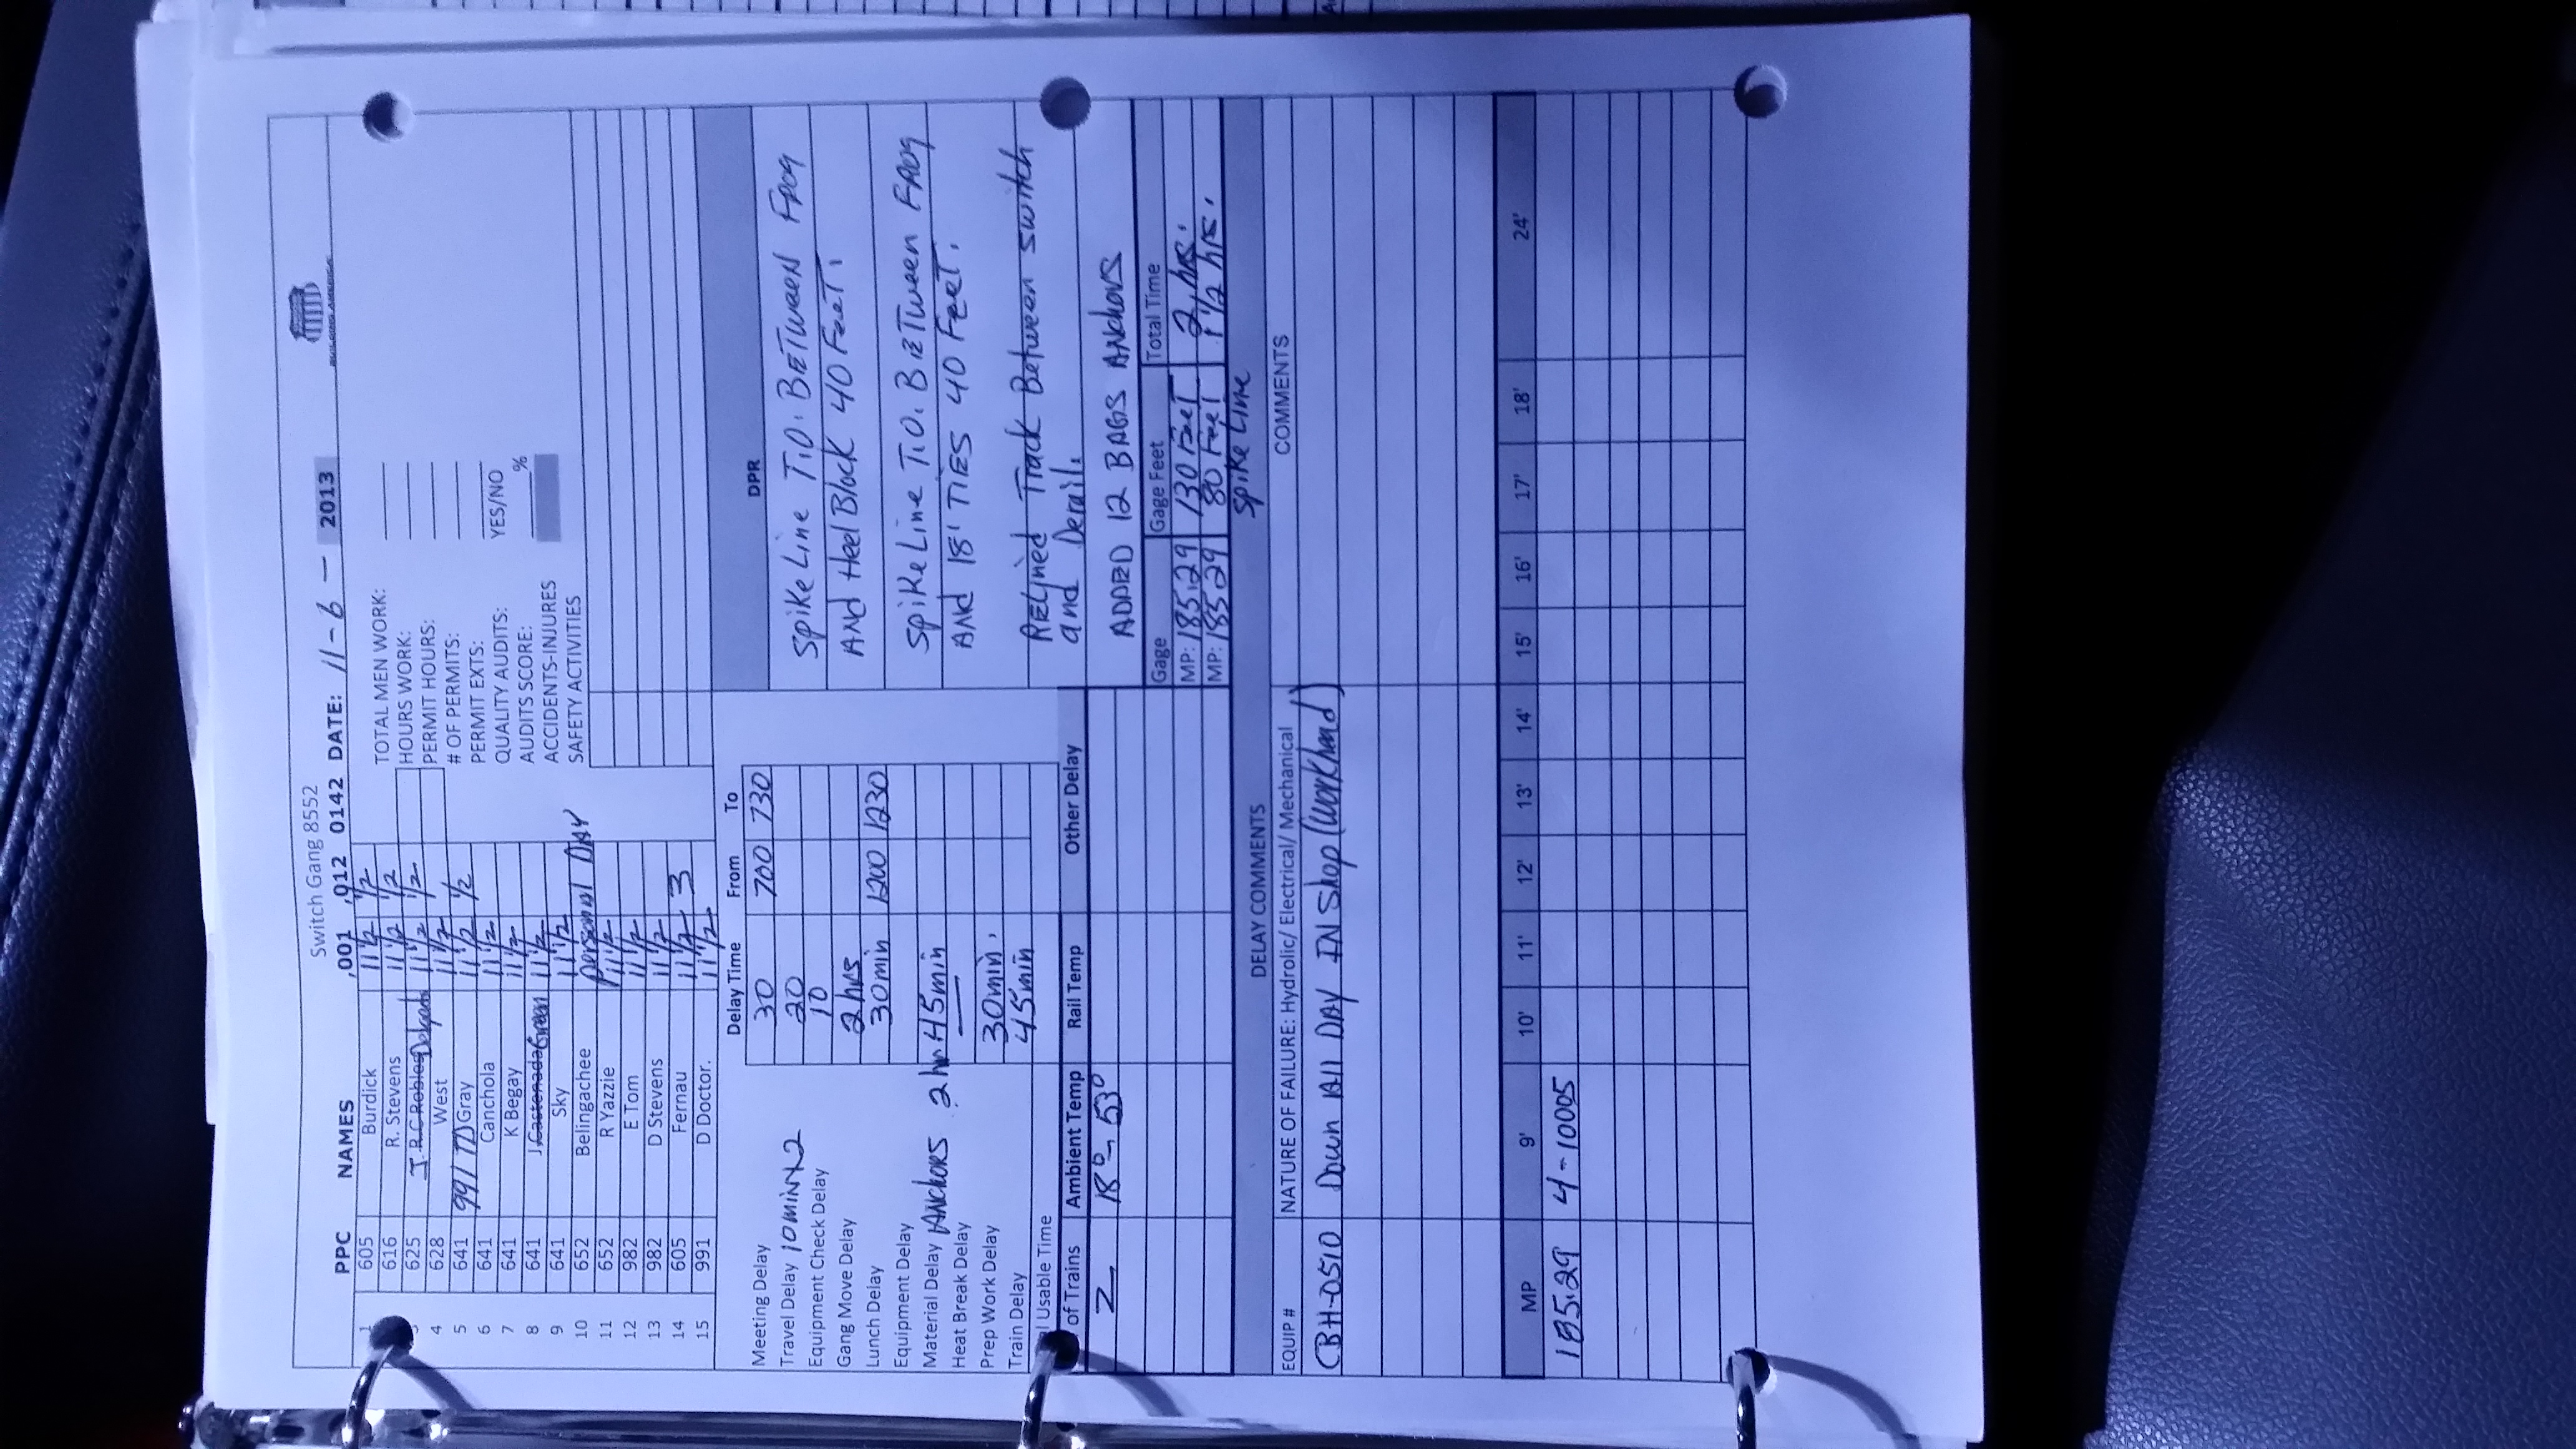 Switch Gang 8552
PPC NAMES ,001 ,012 0142 DATE: 11-6- 2013
1 605 Burdick 11 1/2 1/2
616 R. Stevens 11 1/2 1/2
3 625 J. R C Robles Delgado 11 1/2 1/2
4 628 West 11 1/2
5 641 991 TD Gray 11 1/2 1/2
6 641 Canchola 11 1/2
7 641 K Begay 11 1/2
8 641 J Castenada Green 11 1/2
9 641 Sky 11 1/2
10 652 Belingachee personal DAY
11 652 R Yazzie 11 1/2
12 982 E Tom 11 1/2
13 982 D Stevens 11 1/2
14 605 Fernau 11 1/2 3
15 991 D Doctor. 11 1/2
TOTAL MEN WORK:
HOURS WORK:
PERMIT HOURS:
# OF PERMITS:
PERMIT EXTS:
QUALITY AUDITS: YES/NO
AUDITS SCORE: %
ACCIDENTS-INJURES
SAFETY ACTIVITIES
Delay Time From To
Meeting Delay 30 700 730
Travel Delay 10minx2 20
Equipment Check Delay 10
Gang Move Delay 2 hrs
Lunch Delay 30min 1200 1230
Equipment Delay
Material Delay ANchors 2 hr 45min
Heat Break Delay —
Prep Work Delay 30min.
Train Delay 45min
l Usable Time
DPR
Spike Line T.O. BETWEEN Frog
And Heel Block 40 Feet.
Spike Line T.O. BETween FROg
ANd 18' TIES 40 Feet.
RELined Track Between switch
and Derail.
ADDED 12 BAGS ANchors
of Trains Ambient Temp Rail Temp Other Delay
2 18°-53°
Gage Gage Feet Total Time
MP: 185.29 130 Feet 2 hrs.
MP: 185.29 80 Feet 1 1/2 hrs.
Spike Line
DELAY COMMENTS
EQUIP # NATURE OF FAILURE: Hydrolic/ Electrical/ Mechanical COMMENTS
CBH-0510 Down All DAY IN Shop (workhead)
MP 9' 10' 11' 12' 13' 14' 15' 16' 17' 18' 24'
185.29 4-1000s